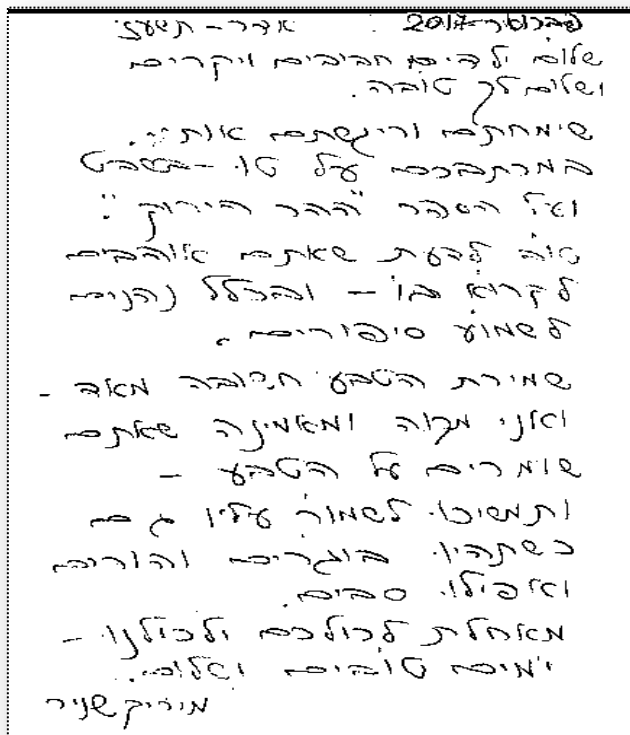 אדר - תשע"ז פברואר-2017
שלום ילדים חביבים ויקרים
ושלום לך טובה.
שימחתם וריגשתם אותי.
במכתבכם על טו-בשבט
ועל הספר "ההר הירוק".
טוב לדעת שאתם אוהבים
לקרוא בו - ובכלל נהנים
לשמוע סיפורים.
שמירת הטבע חשובה מאד -
ואני מקוה ומאמינה שאתם
שומרים על הטבע -
ותמשיכו לשמור עליו גם
כשתהיו בוגרים והורים
ואפילו סבים.
מאחלת לכולכם ולכולנו -
ימים טובים ושלום.
מיריק שניר